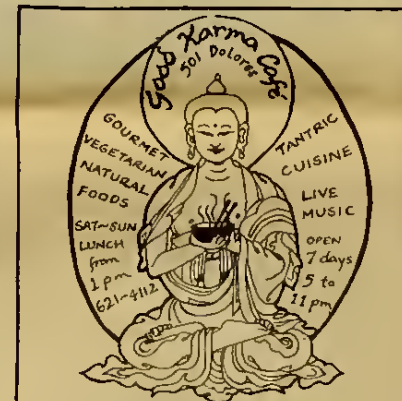 Good Karma Café
501 Dolores
GOURMET
VEGETARIAN
NATURAL
FOODS
SAT~SUN
LUNCH
from
1 pm
621-4112
TANTRIC
CUISINE
LIVE
MUSIC
OPEN
7 days
5 to
11 pm